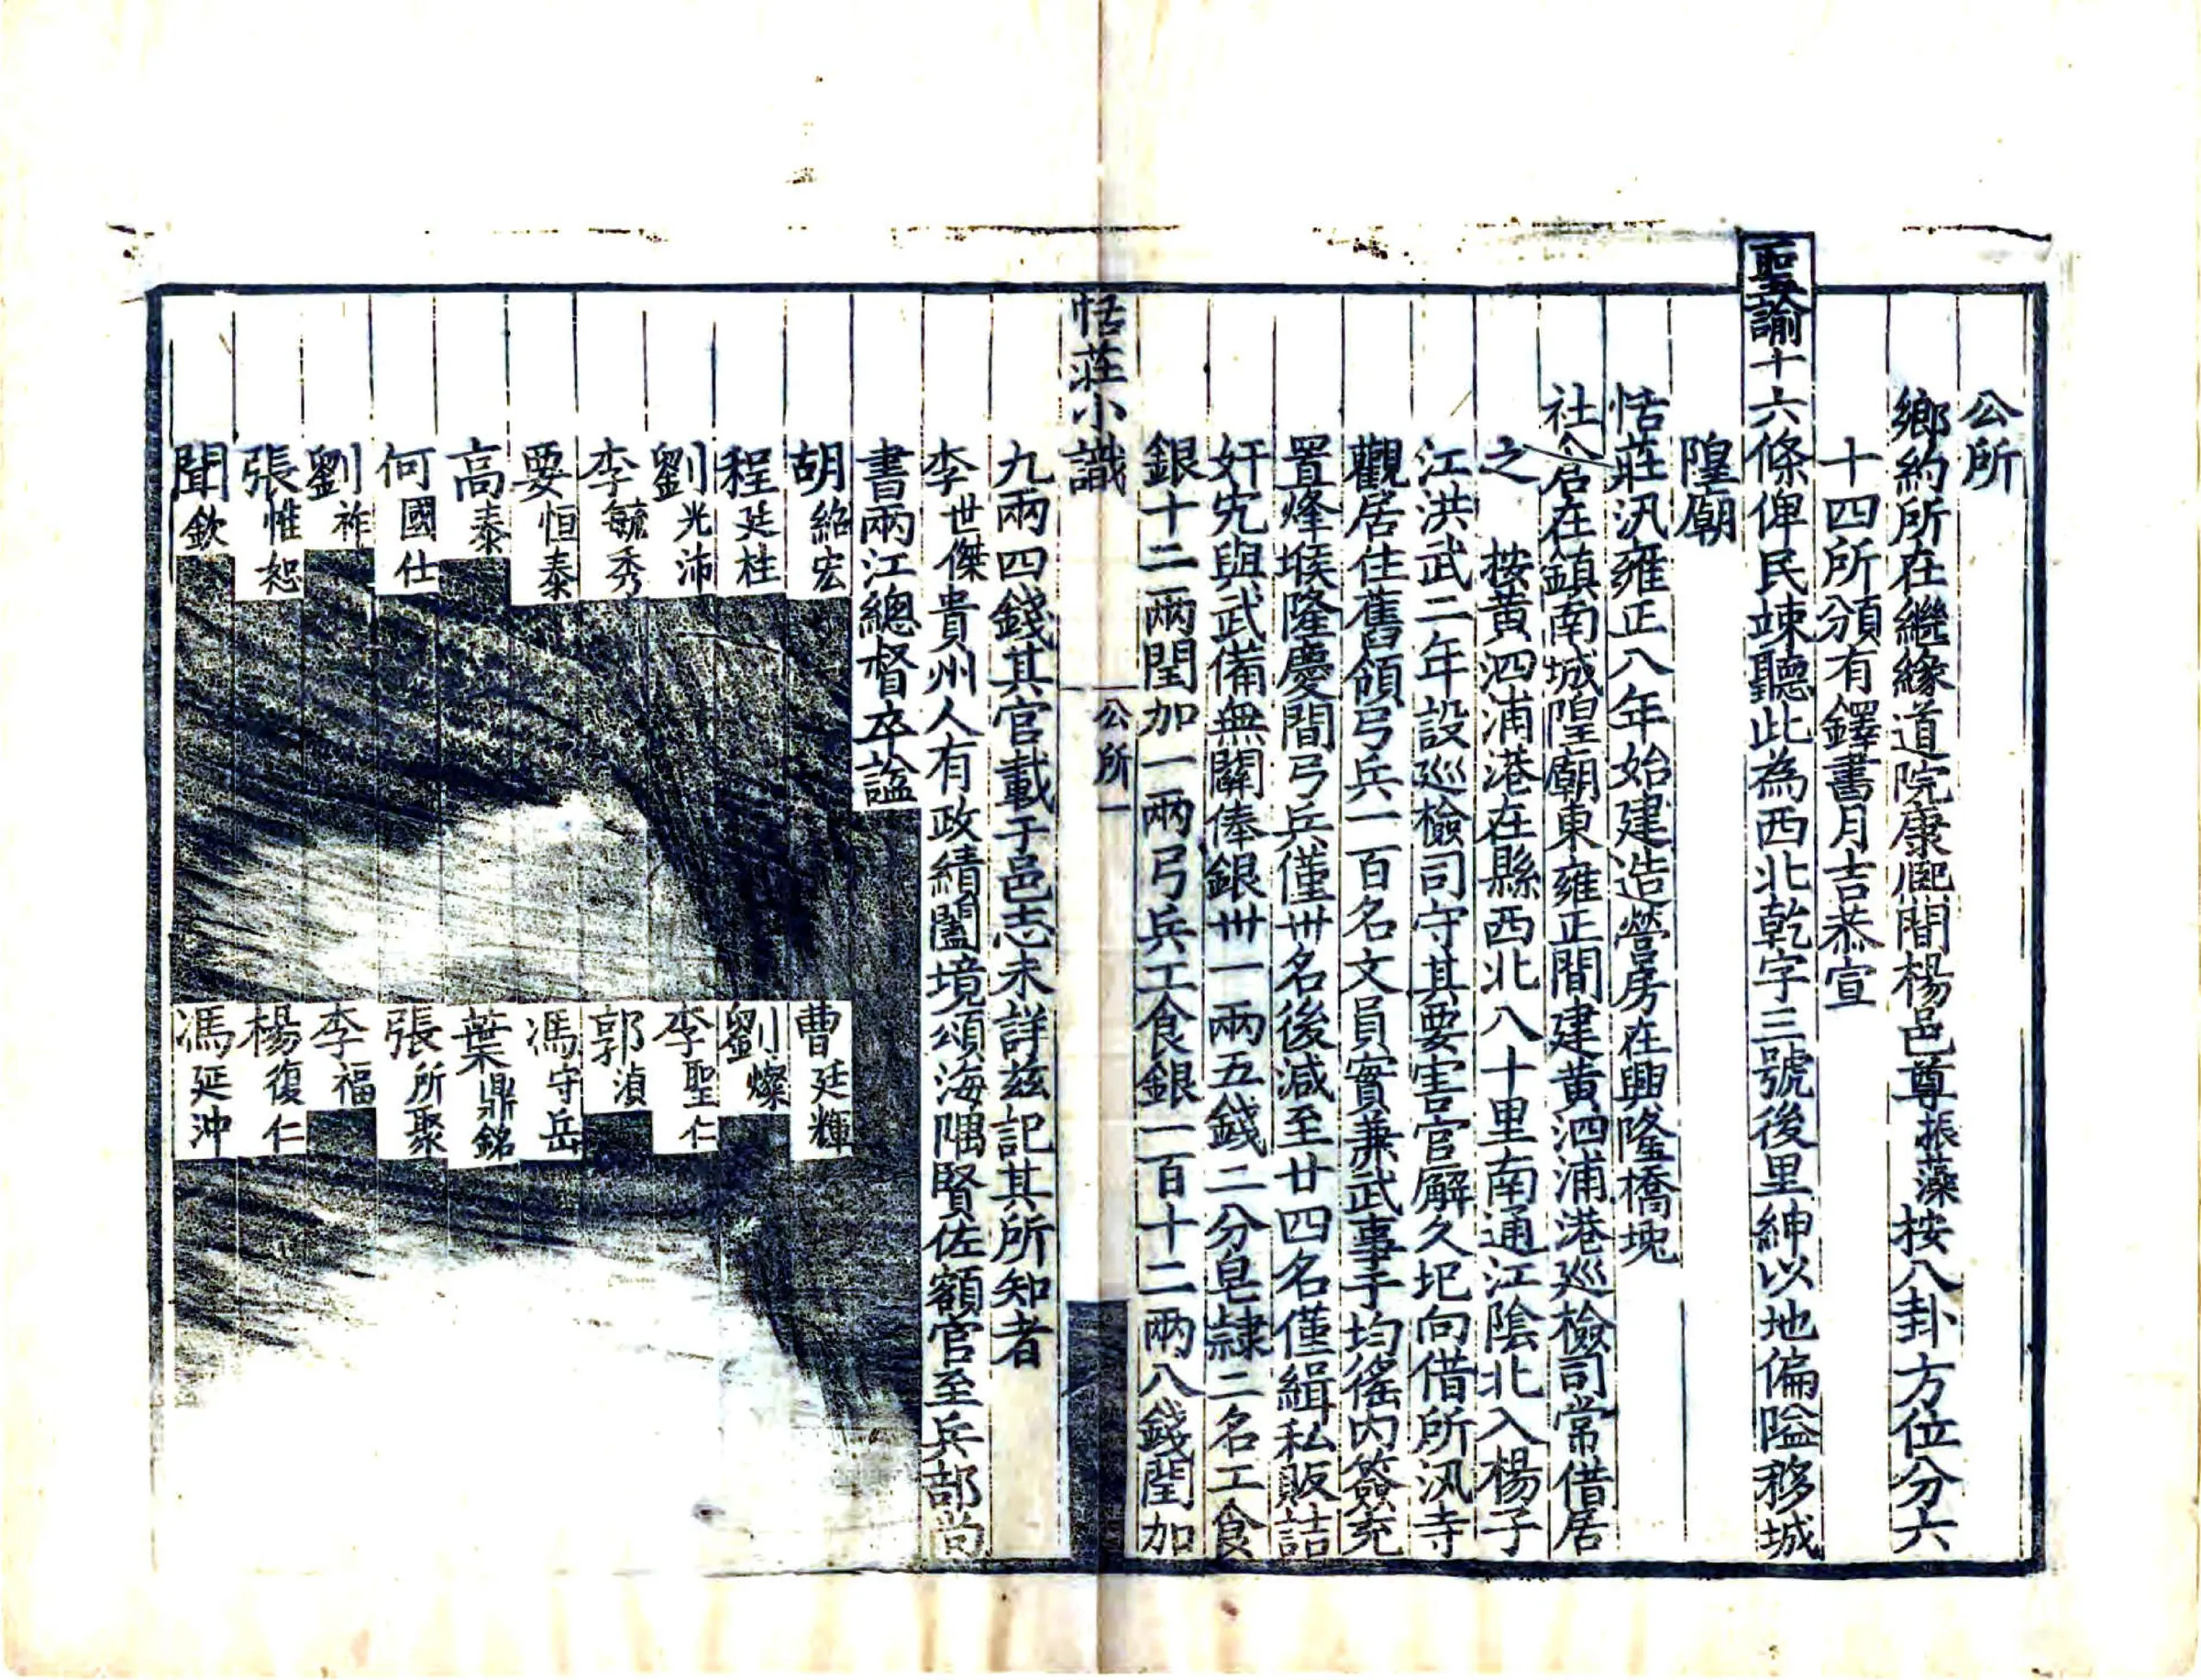 公所
鄉約所在繼緣道院康熙間楊邑尊振藻按八卦方位分六
十四所頒有鐸書月吉恭宣
聖諭十六條俾民竦聽此為西北乾字三號後里紳以地偏隘移城
隍廟
恬莊汛雍正八年始建造營房在興隆橋堍
社倉在鎮南城隍廟東雍正間建黃泗浦港巡檢司常借居
之 按黃泗浦港在縣西北八十里南通江陰北入楊子
江洪武二年設巡檢司守其要害官廨久圮向借所汛寺
觀居住舊領弓兵一百名文員實兼武事于均徭內簽充
置烽堠隆慶間弓兵僅卅名後減至廿四名僅緝私販詰
奸宄與武備無關俸銀卅一兩五錢二分皂隸二名工食
銀十二兩閏加一兩弓兵工食銀一百十二兩八錢閏加
恬莊小識
公所一
九兩四錢其官載于邑志未詳茲記其所知者
李世傑貴州人有政績闔境頌海隅賢佐額官至兵部尚
書兩江總督卒謚
胡紹宏 曹廷輝
程廷柱 劉燦
劉光沛 李聖仁
李毓秀 郭湞
要恒泰 馮守岳
高泰 葉鼎銘
何國仕 張所聚
劉祚 李福
張惟恕 楊復仁
聞欽 馮延沖